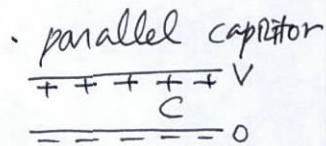 · parallel capacitor
+ + + + + V
C
− − − − − 0